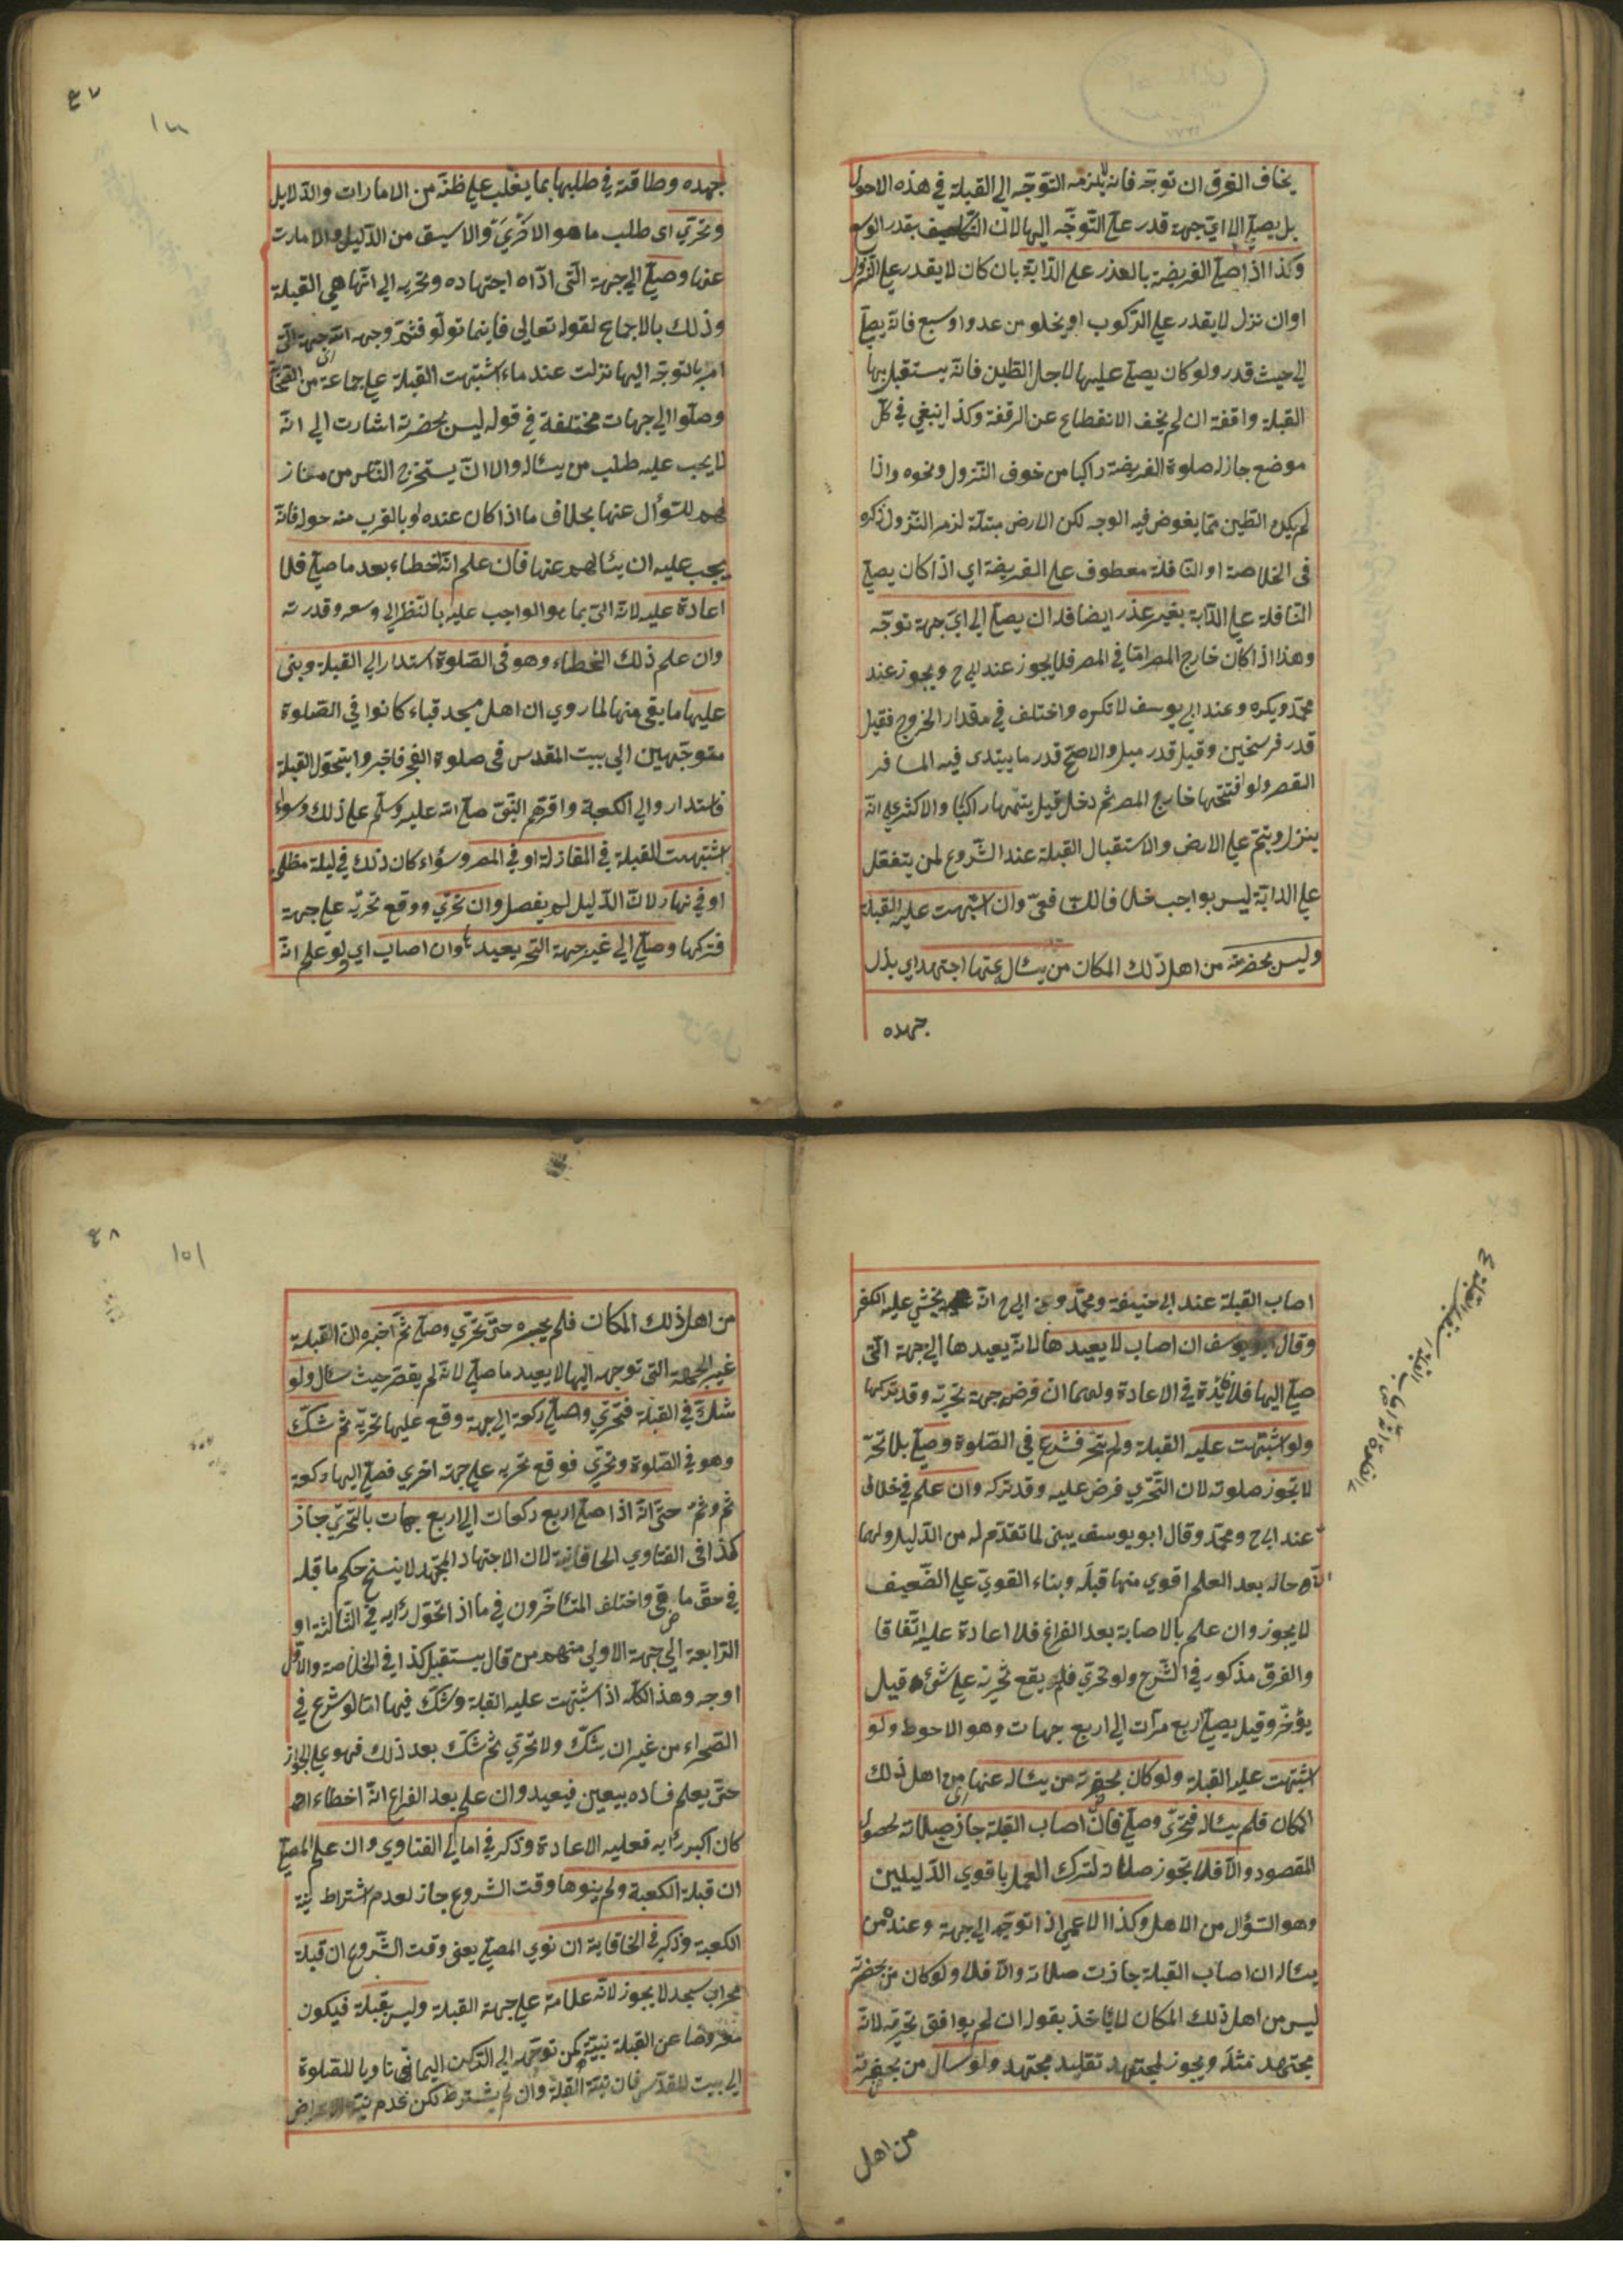 يخاف الغرق ان توجّه فانه لا يلزمه التوجّه الي القبلة في هذه الاحوال
بل يصلّي الي ايّ جهة قدر علي التّوجّه اليها لانّ التكليف بقدر الوسع
وكذا اذا صلّي الفريضة بالعذر علي الدّابة بان كان لا يقدر علي النّزول
او ان نزل لا يقدر علي الرّكوب او يخاف من عدو او سبع فانّه يصلّي
الي حيث قدر ولو كان يصلّي عليها لاجل الطّين فانّه يستقبل بها
القبلة واقفة ان لم يخف الانقطاع عن الرفقة وكذا ينبغي في كلّ
موضع جاز له صلوة الفريضة راكبا من خوف النّزول ونحوه واذا
لم يكن الطّين ممّا يغوض فيه الوجه لكن الارض مبتلّة لزمه النّزول ذكره
في الخلاصة او النّافلة معطوف علي الفريضة اي اذا كان يصلّي
النّافلة علي الدّابة بغير عذر ايضا فله ان يصلّي الي ايّ جهة توجّه
وهذا اذا كان خارج المصر امّا في المصر فلا يجوز عند ابي ح ويجوز عند
محمّد ويكره وعند ابي يوسف لا تكره واختلف في مقدار الخروج فقيل
قدر فرسخين وقيل قدر ميل والاصحّ قدر ما يبتدي فيه المسافر
القصر ولو افتتحها خارج المصر ثم دخل قيل يتمّها راكبًا والاكثر علي انّه
ينزل ويتمّ علي الارض والاستقبال القبلة عند الشّروع لمن يتنفل
علي الدابّة ليس بواجب خلافا للشّافعيّ وان اشتبهت عليه القبلة
وليس بحضرته من اهل ذلك المكان من يسئال عنها اجتهد اي بذل
جهده
٤٧
جهده وطاقته في طلبها بما يغلب علي ظنّه من الامارات والدّلايل
وتحرّي اي طلب ما هو الاحري والاسبق من الدّليل والامارت
عنها وصلّي الي جهة الّتي ادّاه اجتهاده وتحريه الي انّها هي القبلة
وذلك بالاجماع لقوله تعالي فاينما تولّو فثمّ وجه الله اي جهة الّتي
امر بالتوجّه اليها نزلت عند ما اشتبهت القبلة علي جماعة من الصحابة
وصلّوا الي جهات مختلفة في قوله ليس بحضرته اشارت الي انّه
لا يجب عليه طلب من يسئاله والا انّ يستخرج النّاس من منازلهم
للسّؤال عنها بخلاف ما اذا كان عنده او بالقرب منه حوله فانّه
يجب عليه ان يسئالهم عنها فان علم انّه اخطاء بعد ما صلّي فلا
اعادة عليه لانّه اتي بما هو الواجب عليه بالنّظر الي وسعه وقدرته
وان علم ذلك الخطاء وهو في الصّلوة استدار الي القبلة وبني
عليها ما بقي منها لما روي ان اهل مسجد قباء كانوا في الصّلوة
متوجّهين الي بيت المقدس في صلوة الفجر فاخبروا بتحوّل القبلة
فاستداروا الي الكعبة واقرّهم النّبيّ صلّي الله عليه وسلّم علي ذلك وسواء
اشتبهت القبلة في المفازة او في المصر وسؤاء كان ذلك في ليلة مظلمة
او في نهار لانّ الدّليل لم يفصل وان تحرّي ووقع تحرّيه علي جهة
فتركها وصلّي الي غير جهة التحري يعيد وان اصاب اي ولو علم انّه
اصاب القبلة عند ابي حنيفة ومحمّد وعن ابي ح انّه يخشي عليه الكفر
وقال ابو يوسف ان اصاب لا يعيدها لانّه يعيدها الي جهة الّتي
صلّي اليها فلا فائدة في الاعادة ولهما ان فرض جهة تحريه وقد تركها
ولو اشتبهت عليه القبلة ولم يتحرّ فشرع في الصّلوة وصلّي بلا تحرّ
لا تجوز صلوته لان التّحرّي فرض عليه وقد تركه وان علم في خلال
عند ابي ح ومحمّد وقال ابو يوسف يبني لما تقدّم له من الدّليل ولهما
انّ حاله بعد العلم اقوي منها قبله وبناء القويّ علي الضّعيف
لا يجوز وان علم بالاصابة بعد الفراغ فلا اعادة عليه اتّفاقا
والفرق مذكور في الشّرح ولو تحرّي فلم يقع تحريه علي شئ قيل
يؤخّر وقيل يصلّي اربع مرّات الي اربع جهات وهو الاحوط ولو
اشتبهت عليه القبلة ولو كان بحضرته من يسئاله عنها اي من اهل ذلك
المكان فلم يسئاله فتحرّي وصلّي فانّ اصاب القبلة جاز صلاته لحصول
المقصود والّا فلا تجوز صلاته لترك العمل باقوي الدّليلين
وهو السّؤال من الاهل وكذا الاعمي اذا توجّه الي جهة وعنده من
يسئاله ان اصاب القبلة جازت صلاته والّا فلا ولو كان من بحضرته
ليس من اهل ذلك المكان لا ياخذ بقوله ان لم يوافق تحريّه لانّه
مجتهد مثله ويجوز لمجتهد تقليد مجتهد ولو سال من بحضرته
من اهل
٤٨
١٥١
من اهل ذلك المكان فلم يخبره حتّي تحرّي وصلّي ثمّ اخبره انّ القبلة
غير الجهة التي توجه اليها لا يعيد ما صلّي لانّه لم يقصّر حيث سئال ولو
شكّ في القبلة فتحرّي وصلّي ركعة الي جهة وقع عليها تحريّه ثم شكّ
وهو في الصّلوة وتحرّي فوقع تحريه علي جهة اخري فصلّي اليها ركعة
ثم وثم حتّي انّه اذا صلّي اربع ركعات الي اربع جهات بالتّحرّي جاز
كذا في الفتاوي الخاقانية لان الاجتهاد المجتهد لا ينسخ حكم ما قبله
في حقّ ما مضي واختلف المتأخّرون في ما اذا تحوّل رأيه في الثّالثة او
الرّابعة الي جهة الاولي منهم من قال يستقبل كذا في الخلاصة والاوّل
اوجه وهذا كلّه اذا اشتبهت عليه القبلة وشكّ فيها امّا لو شرع في
الصّحراء من غير ان يشكّ ولا تحرّي ثم شكّ بعد ذلك فهو علي الجواز
حتّي يعلم فساده بيقين فيعيد وان علم بعد الفراغ انّه اخطاء او
كان اكبر رأيه فعليه الاعادة وذكر في امالي الفتاوي وان علم المصلّي
ان قبلة الكعبة ولم ينوها وقت الشروع جاز لعدم اشتراط نيّة
الكعبة وذكر في الخاقانية ان نوي المصلّي يعني وقت الشّروع ان قبلة
محراب مسجد لا يجوز لانّه علامة علي جهة القبلة وليس بقبلة فيكون
معروضا عن القبلة نبيّته كمن توجّه الي الرّكن اليماني ناويا للصّلوة
الي بيت المقدّس فان نيّة القبلة وان لم يشترط لكن عدم نيّة الاعراض